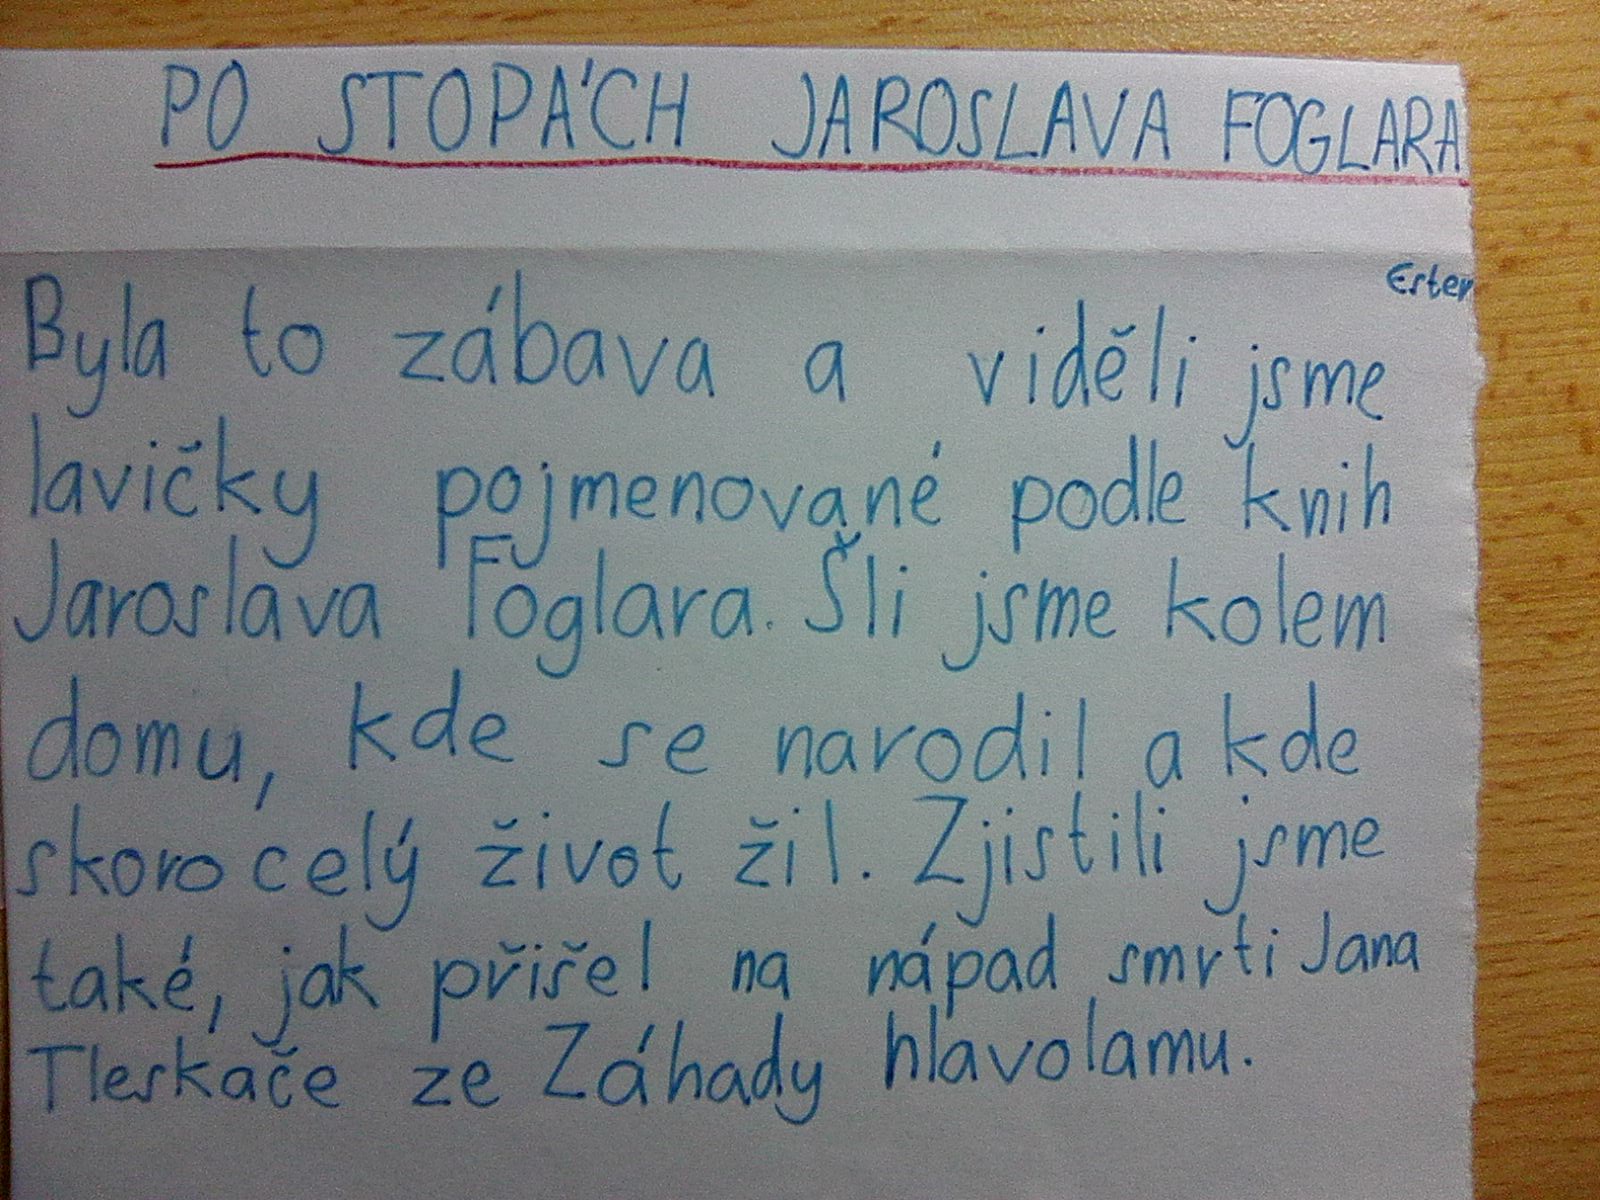 PO STOPÁCH JAROSLAVA FOGLARA
Ester
Byla to zábava a viděli jsme
lavičky pojmenované podle knih
Jaroslava Foglara. Šli jsme kolem
domu, kde se narodil a kde
skoro celý život žil. Zjistili jsme
také, jak přišel na nápad smrti Jana
Tleskače ze Záhady hlavolamu.